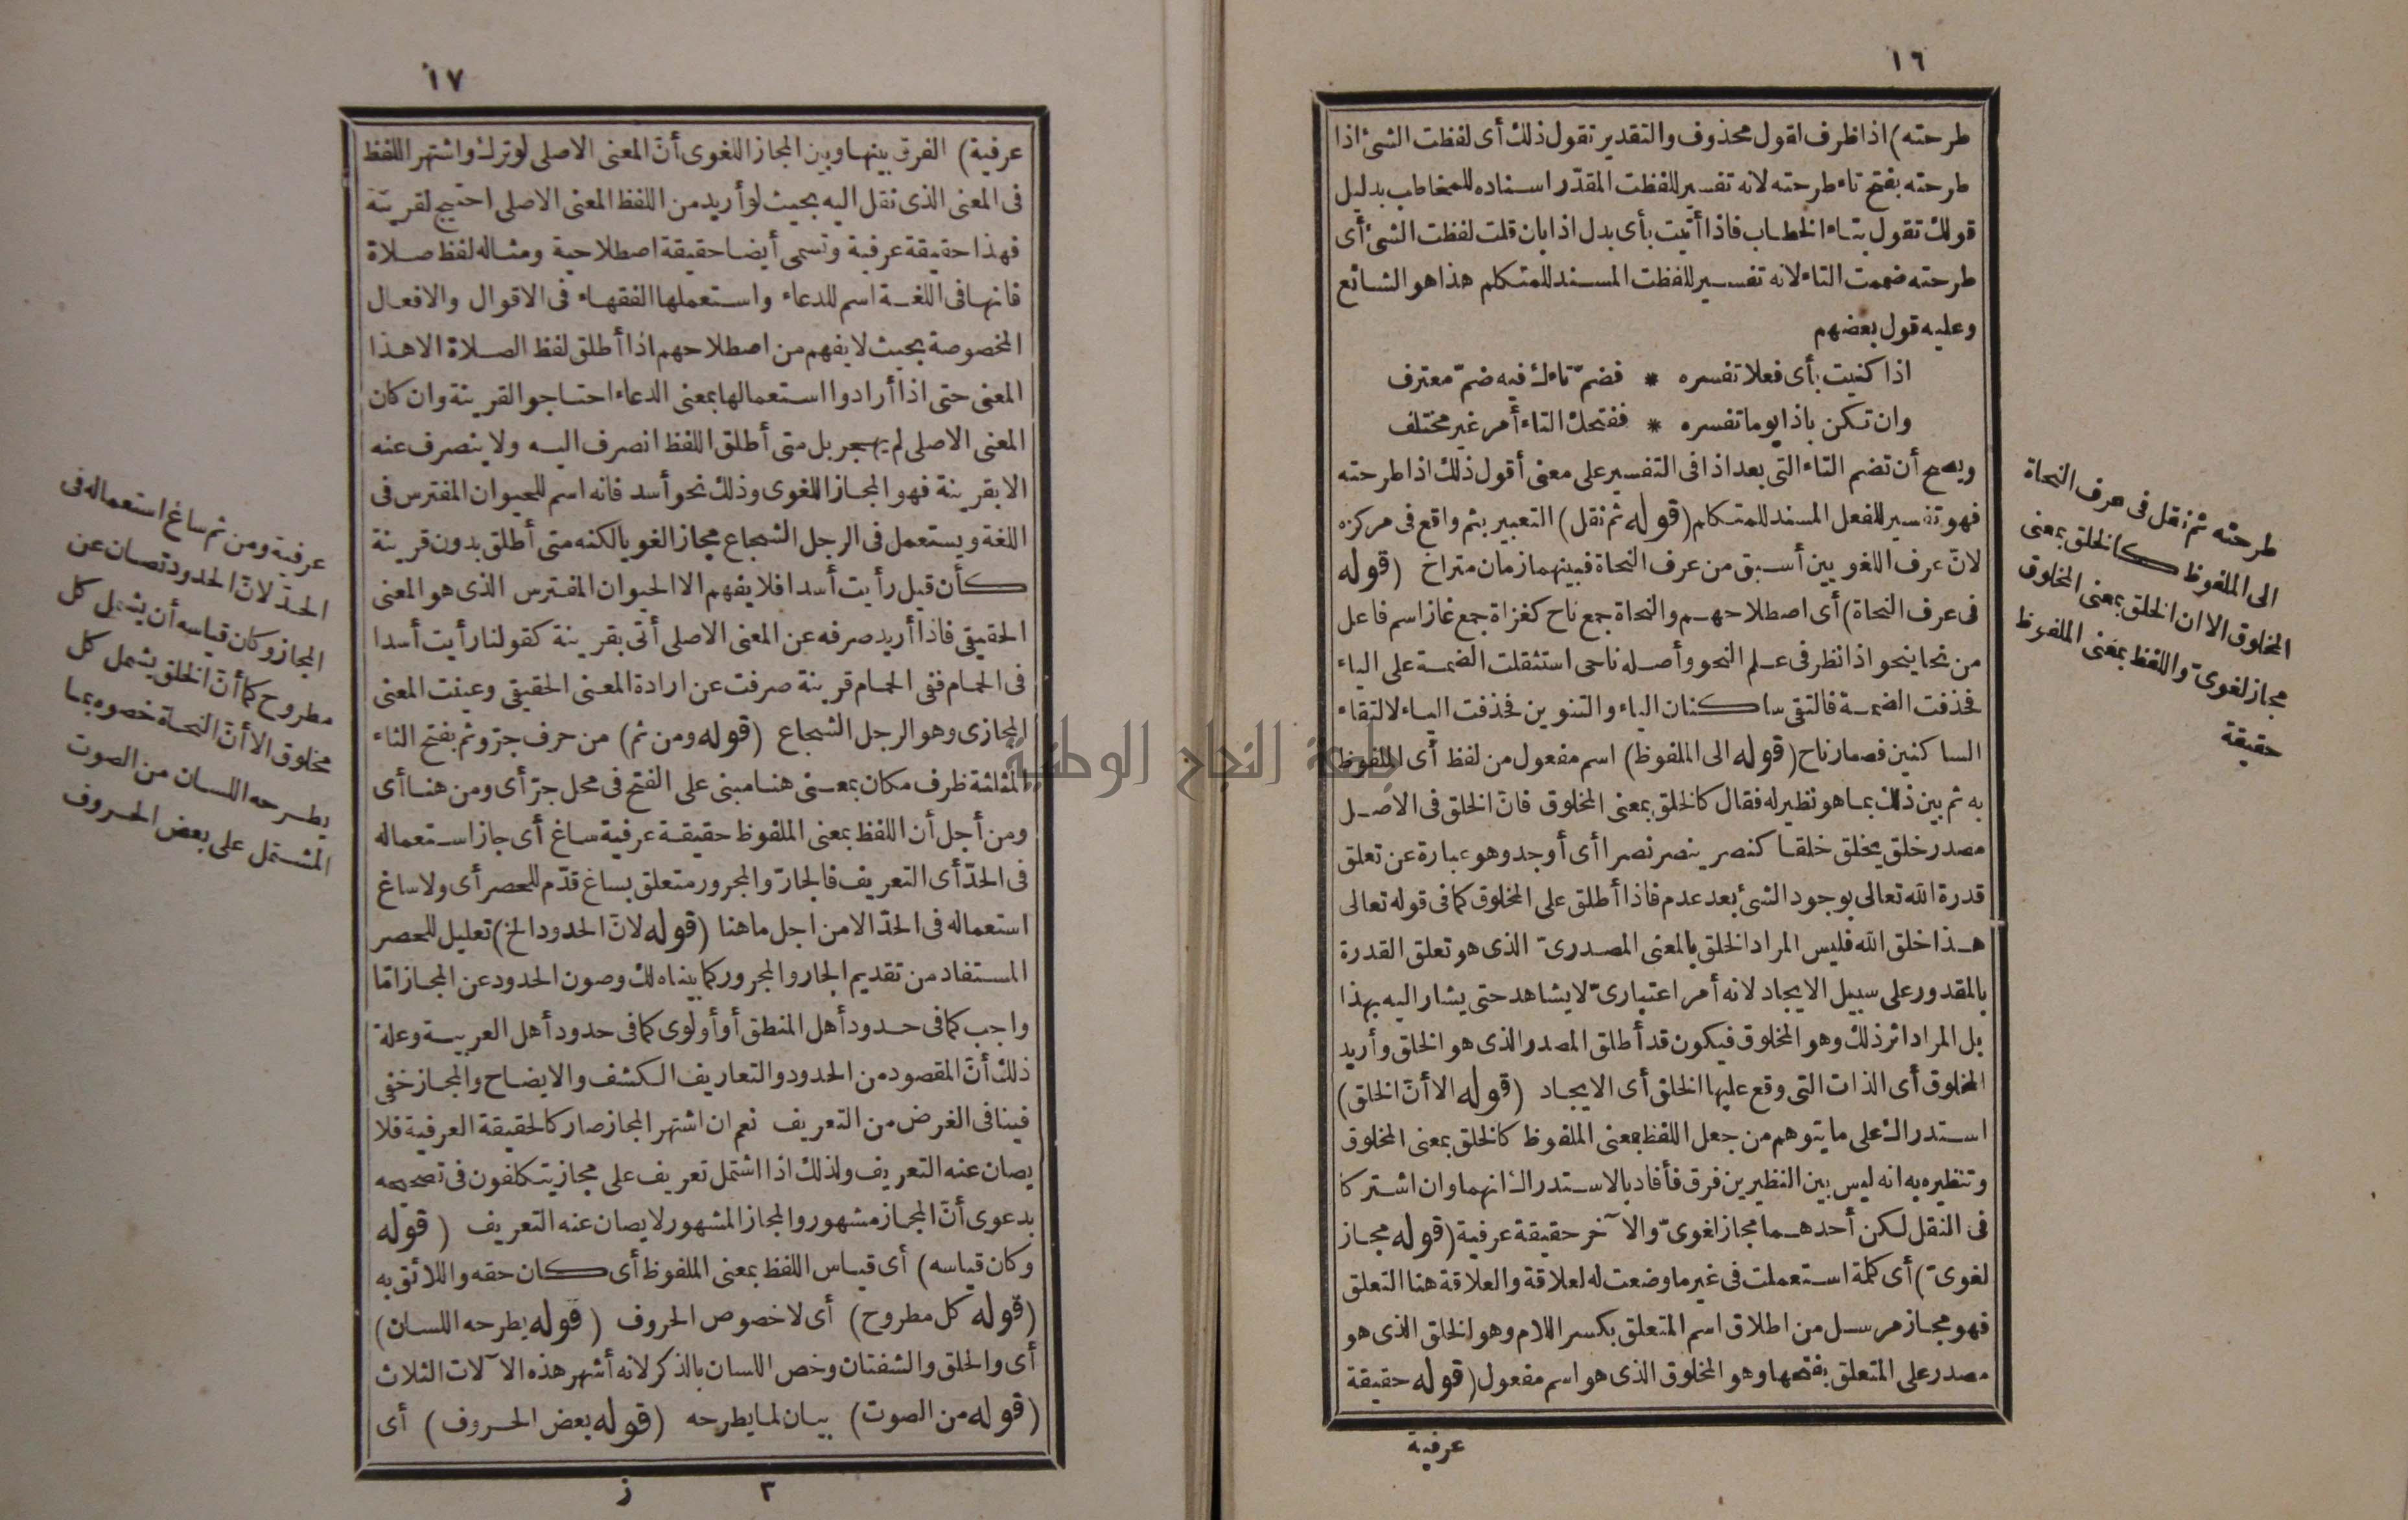 ١٦
طرحته) اذا ظرف لقول محذوف والتقدير تقول ذلك أى لفظت الشئ اذا
طرحته بفتح تاء طرحته لانه تفسير للفظت المقدّر اسناده للمخاطب بدليل
قولك تقول بتاء الخطاب فاذا أتيت بأى بدل اذا بان قلت لفظت الشئ أى
طرحته ضممت التاء لانه تفسير للفظت المسند للمتكلم هذا هو الشائع
وعليه قول بعضهم
اذا كنيت بأى فعلا تفسره * فضمّ تاءك فيه ضمّ معترف
وان تكن باذا يوما تفسره * ففتحك التاء أمر غير مختلف
ويصح أن تضم التاء التى بعد اذا فى التفسير على معنى أقول ذلك اذا طرحته
فهو تفسير للفعل المسند للمتكلم (قوله ثم نقل) التعبير بثم واقع فى مركزه
لانّ عرف اللغويين أسبق من عرف النحاة فبينهما زمان متراخ (قوله
فى عرف النحاة) أى اصطلاحهم والنحاة جمع ناح كغزاة جمع غاز اسم فاعل
من نحا ينحو اذا نظر فى علم النحو وأصله ناحى استثقلت الضمة على الياء
فحذفت الضمة فالتقى ساكنان الياء والتنوين فحذفت الياء لالتقاء
الساكنين فصار ناح (قوله الى الملفوظ) اسم مفعول من لفظ أى الملفوظ
به ثم بين ذلك بما هو نظير له فقال كالخلق بمعنى المخلوق فانّ الخلق فى الاصل
مصدر خلق يخلق خلقا كنصر ينصر نصرا أى أوجد وهو عبارة عن تعلق
قدرة الله تعالى بوجود الشئ بعد عدم فاذا أطلق على المخلوق كما فى قوله تعالى
هذا خلق الله فليس المراد الخلق بالمعنى المصدرىّ الذى هو تعلق القدرة
بالمقدور على سبيل الايجاد لانه أمر اعتبارىّ لا يشاهد حتى يشار اليه بهذا
بل المراد اثر ذلك وهو المخلوق فيكون قد أطلق المصدر الذى هو الخلق وأريد
المخلوق أى الذات التى وقع عليها الخلق أى الايجاد (قوله الا أنّ الخلق)
استدراك على ما يتوهم من جعل اللفظ بمعنى الملفوظ كالخلق بمعنى المخلوق
وتنظيره به انه ليس بين النظيرين فرق فأفاد بالاستدراك انهما وان اشتركا
فى النقل لكن أحدهما مجاز لغوىّ والآخر حقيقة عرفية (قوله مجاز
لغوىّ) أى كلمة استعملت فى غير ما وضعت له لعلاقة والعلاقة هنا التعلق
فهو مجاز مرسل من اطلاق اسم المتعلق بكسر اللام وهو الخلق الذى هو
مصدر على المتعلق بفتحها وهو المخلوق الذى هو اسم مفعول (قوله حقيقة
عرفية
طرحته ثم نقل فى عرف النحاة
الى الملفوظ كالخلق بمعنى
المخلوق الا ان الخلق بمعنى المخلوق
مجاز لغوىّ واللفظ بمعنى الملفوظ
حقيقة
١٧
عرفية) الفرق بينها وبين المجاز اللغوى أنّ المعنى الاصلى لو ترك واشتهر اللفظ
فى المعنى الذى نقل اليه بحيث لو أريد من اللفظ المعنى الاصلى احتيج لقرينة
فهذا حقيقة عرفية وتسمى أيضا حقيقة اصطلاحية ومثاله لفظ صلاة
فانها فى اللغة اسم للدعاء واستعملها الفقهاء فى الاقوال والافعال
المخصوصة بحيث لا يفهم من اصطلاحهم اذا أطلق لفظ الصلاة الا هذا
المعنى حتى اذا أرادوا استعمالها بمعنى الدعاء احتاجوا لقرينة وان كان
المعنى الاصلى لم يهجر بل متى أطلق اللفظ انصرف اليه ولا ينصرف عنه
الا بقرينة فهو المجاز اللغوى وذلك نحو أسد فانه اسم للحيوان المفترس فى
اللغة ويستعمل فى الرجل الشجاع مجازا لغويا لكنه متى أطلق بدون قرينة
كأن قيل رأيت أسدا فلا يفهم الا الحيوان المفترس الذى هو المعنى
الحقيقى فاذا أريد صرفه عن المعنى الاصلى أتى بقرينة كقولنا رأيت أسدا
فى الحمام ففى الحمام قرينة صرفت عن ارادة المعنى الحقيقى وعينت المعنى
المجازى وهو الرجل الشجاع (قوله ومن ثم) من حرف جرّ وثم بفتح الثاء
المثلثة ظرف مكان بمعنى هنا مبنى على الفتح فى محل جرّ أى ومن هنا أى
ومن أجل أن اللفظ بمعنى الملفوظ حقيقة عرفية ساغ أى جاز استعماله
فى الحدّ أى التعريف فالجارّ والمجرور متعلق بساغ قدّم للحصر أى ولا ساغ
استعماله فى الحدّ الا من اجل ما هنا (قوله لانّ الحدود الخ) تعليل للحصر
المستفاد من تقديم الجار والمجرور كما بيناه لك وصون الحدود عن المجاز امّا
واجب كما فى حدود أهل المنطق أو أولوى كما فى حدود أهل العربية وعلة
ذلك أنّ المقصود من الحدود والتعاريف الكشف والايضاح والمجاز خفى
فينافى الغرض من التعريف نعم ان اشتهر المجاز صار كالحقيقة العرفية فلا
يصان عنه التعريف ولذلك اذا اشتمل تعريف على مجاز يتكلفون فى تصحيحه
بدعوى أنّ المجاز مشهور والمجاز المشهور لا يصان عنه التعريف (قوله
وكان قياسه) أى قياس اللفظ بمعنى الملفوظ أى كان حقه واللائق به
(قوله كل مطروح) أى لا خصوص الحروف (قوله يطرحه اللسان)
أى والحلق والشفتان وخص اللسان بالذكر لانه أشهر هذه الآلات الثلاث
(قوله من الصوت) بيان لما يطرحه (قوله بعض الحروف) أى
٣ ز
عرفية ومن ثم ساغ استعماله فى
الحدّ لانّ الحدود تصان عن
المجاز وكان قياسه أن يشمل كل
مطروح كما أنّ الخلق يشمل كل
مخلوق الا أنّ النحاة خصوه بما
يطرحه اللسان من الصوت
المشتمل على بعض الحروف
جامعة النجاح الوطنية